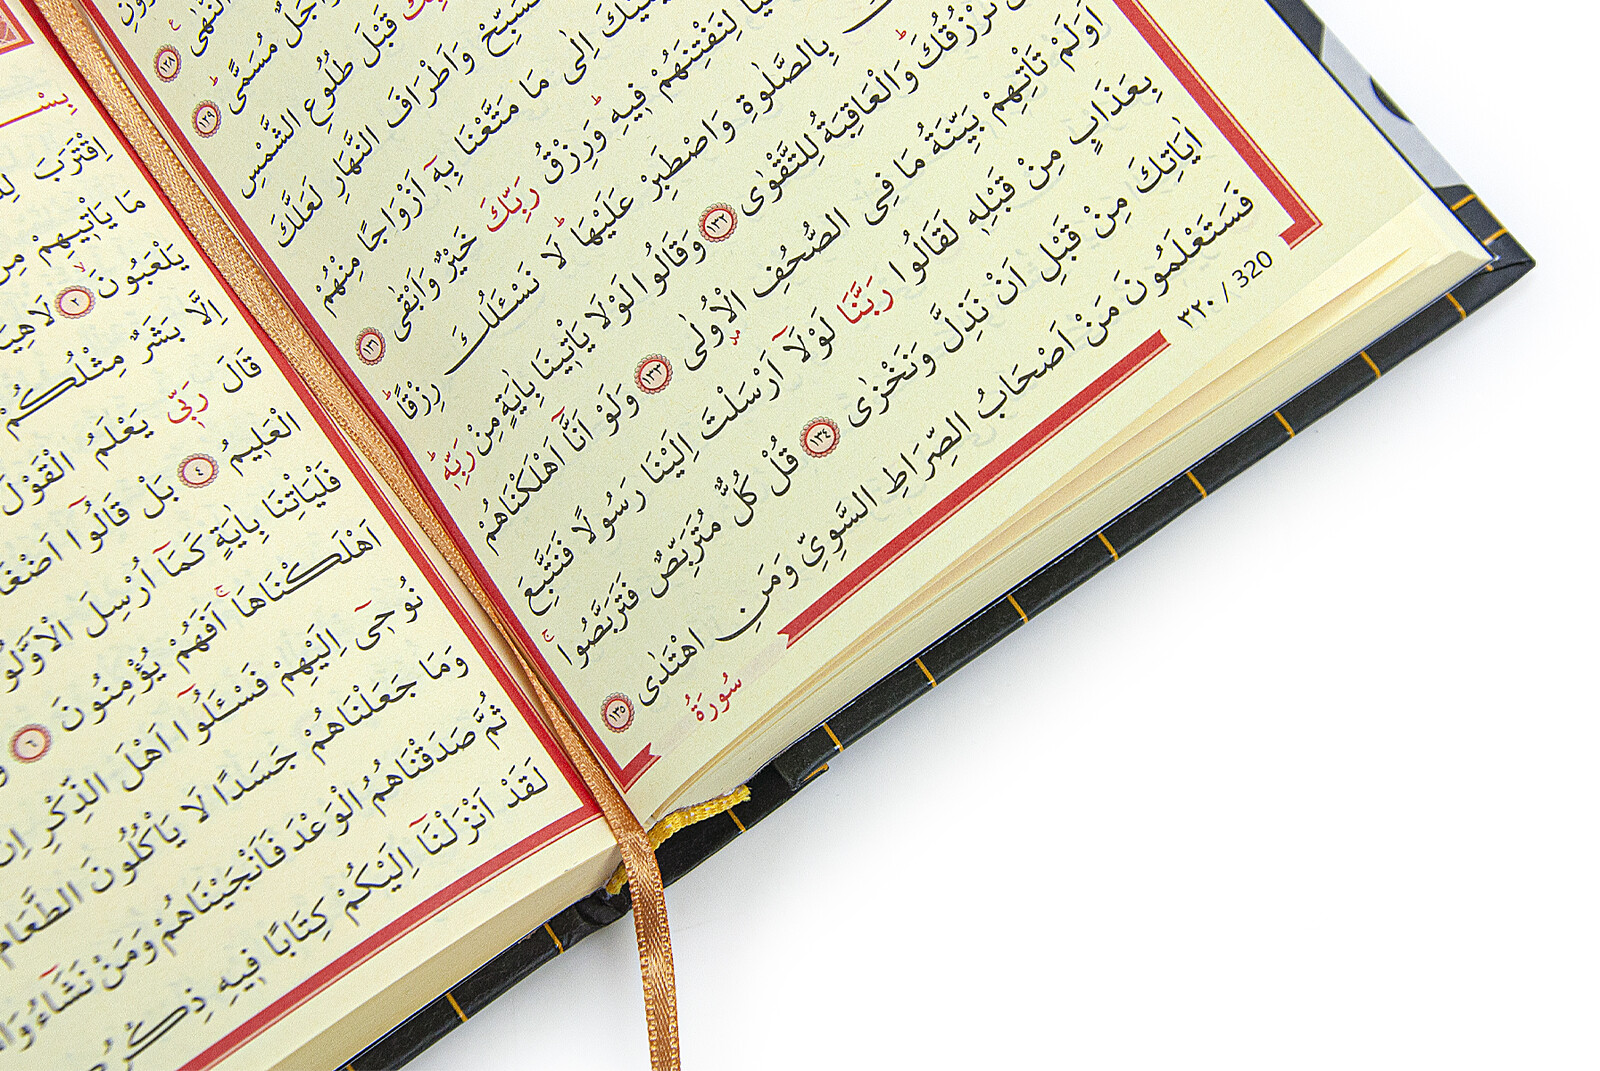 النُّهٰى ﴿١٢٨﴾
اَجَلٌ مُسَمًّى ﴿١٢٩﴾
قَبْلَ طُلُوعِ الشَّمْسِ
فَسَبِّحْ وَاَطْرَافَ النَّهَارِ لَعَلَّكَ
اِلٰى مَا مَتَّعْنَا بِهٖٓ اَزْوَاجًا مِنْهُمْ
لِنَفْتِنَهُمْ فٖيهِ وَرِزْقُ رَبِّكَ خَيْرٌ وَاَبْقٰى ﴿١٣١﴾
بِالصَّلٰوةِ وَاصْطَبِرْ عَلَيْهَا لَا نَسْـَٔلُكَ رِزْقًا
نَرْزُقُكَ وَالْعَاقِبَةُ لِلتَّقْوٰى ﴿١٣٢﴾ وَقَالُوا لَوْلَا يَأْتٖينَا بِاٰيَةٍ مِنْ رَبِّهٖ
اَوَلَمْ تَأْتِهِمْ بَيِّنَةُ مَا فِى الصُّحُفِ الْاُولٰى ﴿١٣٣﴾ وَلَوْ اَنَّٓا اَهْلَكْنَاهُمْ
بِعَذَابٍ مِنْ قَبْلِهٖ لَقَالُوا رَبَّنَا لَوْلَٓا اَرْسَلْتَ اِلَيْنَا رَسُولًا فَنَتَّبِعَ
اٰيَاتِكَ مِنْ قَبْلِ اَنْ نَذِلَّ وَنَخْزٰى ﴿١٣٤﴾ قُلْ كُلٌّ مُتَرَبِّصٌ فَتَرَبَّصُوا
فَسَتَعْلَمُونَ مَنْ اَصْحَابُ الصِّرَاطِ السَّوِىِّ وَمَنِ اهْتَدٰى ﴿١٣٥﴾
٣٢٠ / 320
سُورَةُ
اِقْتَرَبَ
مَا يَأْتٖيهِمْ مِنْ
يَلْعَبُونَ ﴿٢﴾ لَاهِيَةً
اِلَّا بَشَرٌ مِثْلُكُمْ
قَالَ رَبّٖى يَعْلَمُ الْقَوْلَ
الْعَلٖيمُ ﴿٤﴾ بَلْ قَالُٓوا
فَلْيَأْتِنَا بِاٰيَةٍ كَمَٓا اُرْسِلَ الْاَوَّلُونَ
اَهْلَكْنَاهَا اَفَهُمْ يُؤْمِنُونَ ﴿٦﴾
نُوحٖٓى اِلَيْهِمْ فَسْـَٔلُٓوا اَهْلَ الذِّكْرِ اِنْ
وَمَا جَعَلْنَاهُمْ جَسَدًا لَا يَأْكُلُونَ الطَّعَامَ
ثُمَّ صَدَقْنَاهُمُ الْوَعْدَ فَاَنْجَيْنَاهُمْ وَمَنْ نَشَٓاءُ
لَقَدْ اَنْزَلْنَٓا اِلَيْكُمْ كِتَابًا فٖيهِ